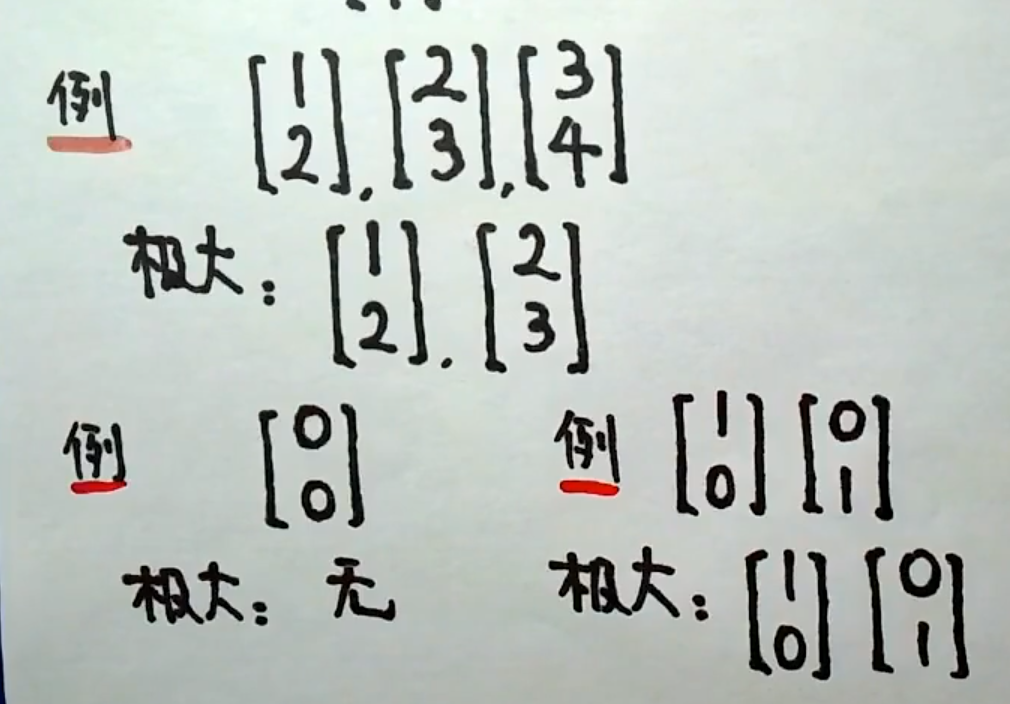 例 [1 2], [2 3], [3 4]
极大: [1 2], [2 3]
例 [0 0]
极大: 无
例 [1 0] [0 1]
极大: [1 0] [0 1]